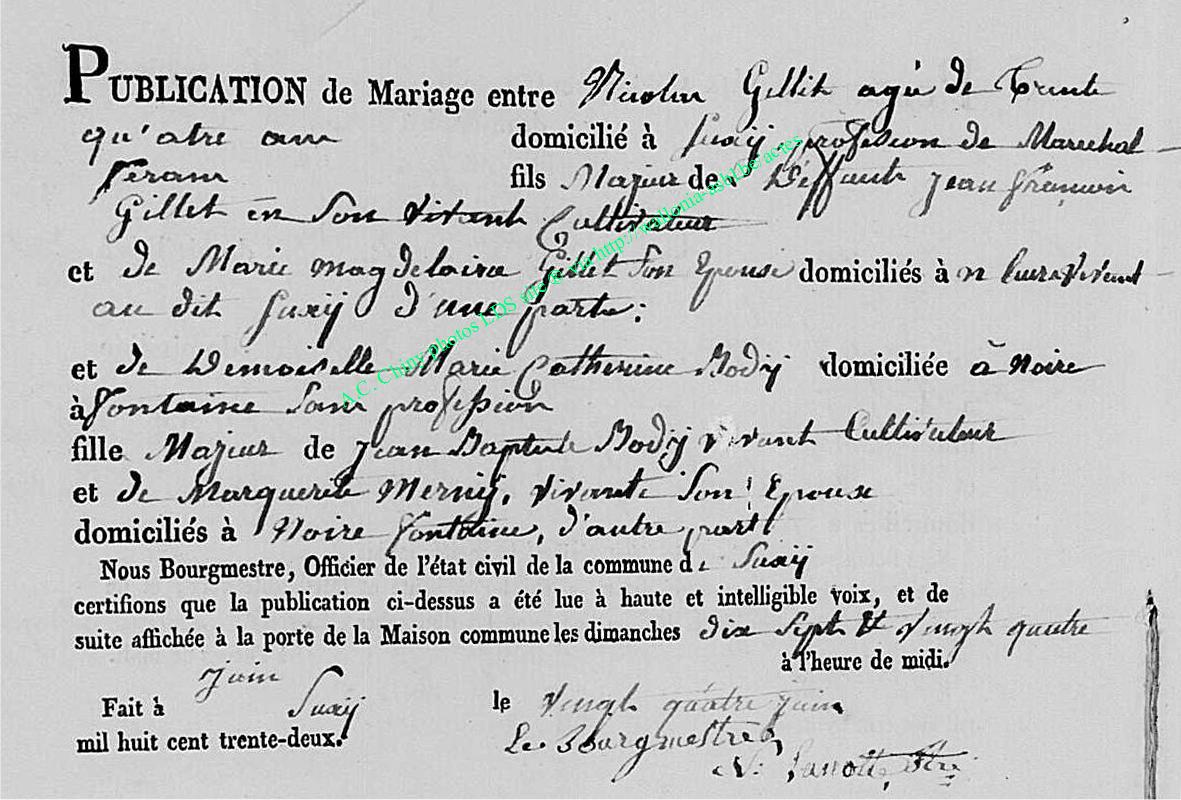 PUBLICATION de Mariage entre Nicolas Gillet agé de Trente
qu'atre ans domicilié à Suxij profession de Marechal
feran fils Majeur de Deffunt Jean françois
Gillet en Son vivant Cultivateur
et de Marie magdelaine Gillet Son Epouse domiciliés à vivent
au dit Suxij d'une parte;
et de Demoiselle Marie Catherine Bodij domiciliée à Noire
à fontaine Sans profession
fille Majeur de Jean Baptiste Bodij vivant Cultivateur
et de Marguerite Mernij, vivante Son Epouse
domiciliés à Noire fontaine, d'autre part
Nous Bourgmestre, Officier de l'état civil de la commune de Suxij
certifions que la publication ci-dessus a été lue à haute et intelligible voix, et de
suite affichée à la porte de la Maison commune les dimanches dix Sept et vingt quatre
juin à l'heure de midi.
Fait à Suxij le vingt quatre juin
mil huit cent trente-deux.
Le Bourgmestre
A.C. Chiny Photos LDS via http://wallonia-asbl.be/actes